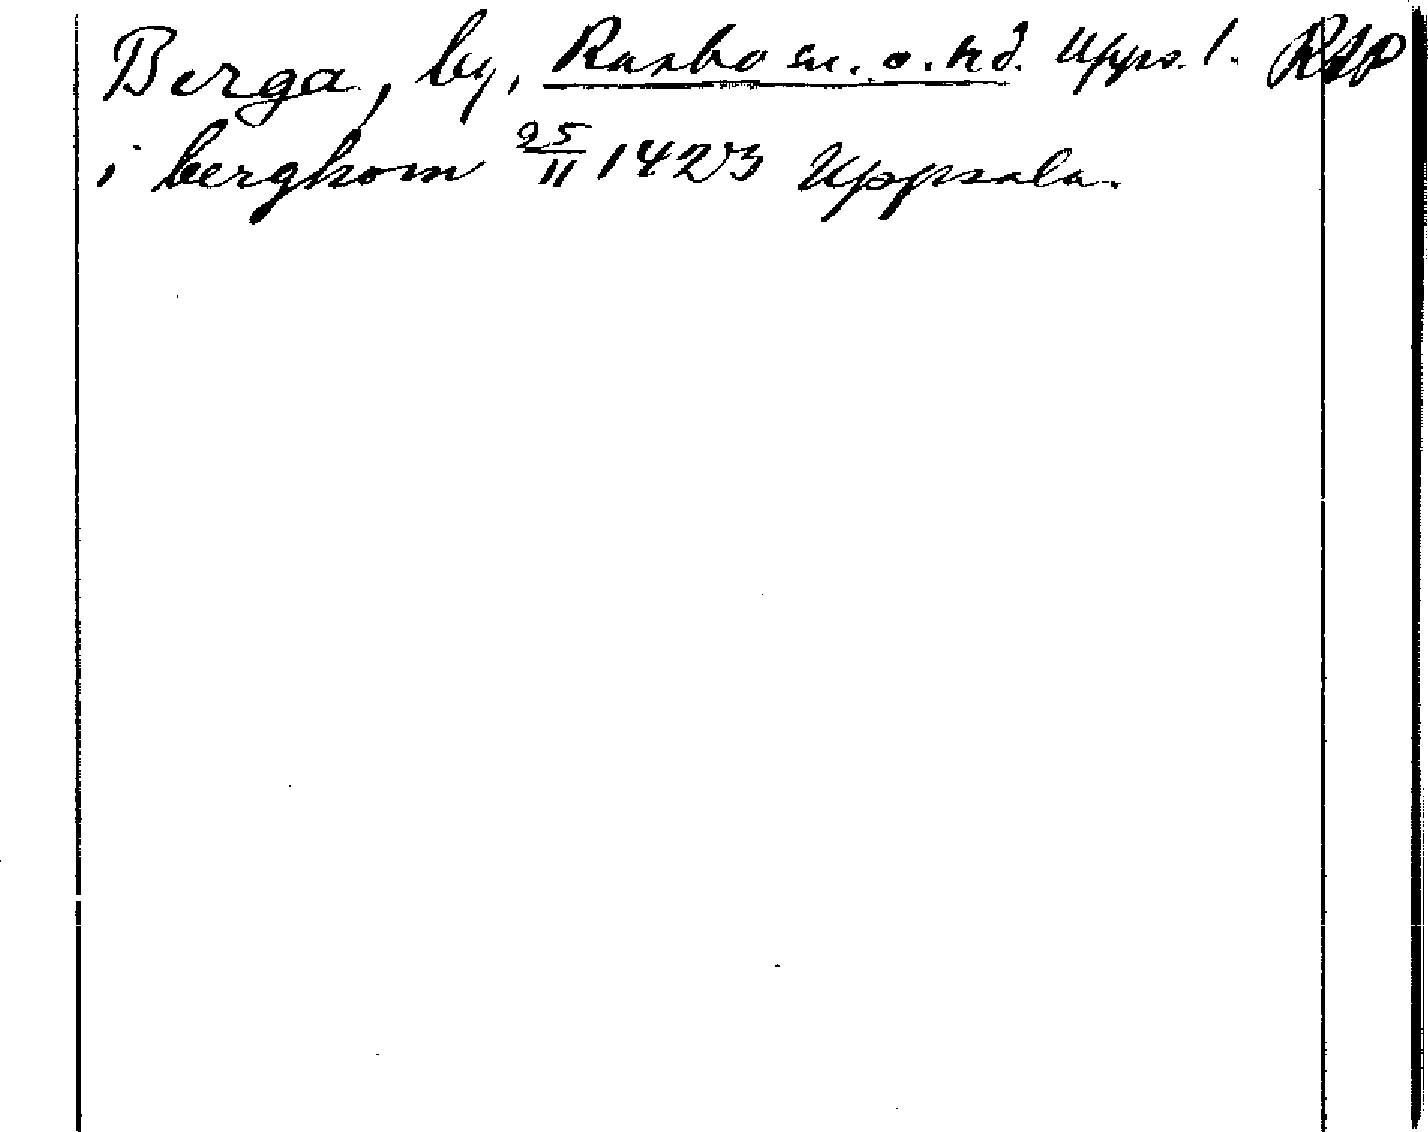 Berga, by, Rasbo sn. o. hd. Upps. l. RAP
i berghom 25/11 1423 Uppsala.